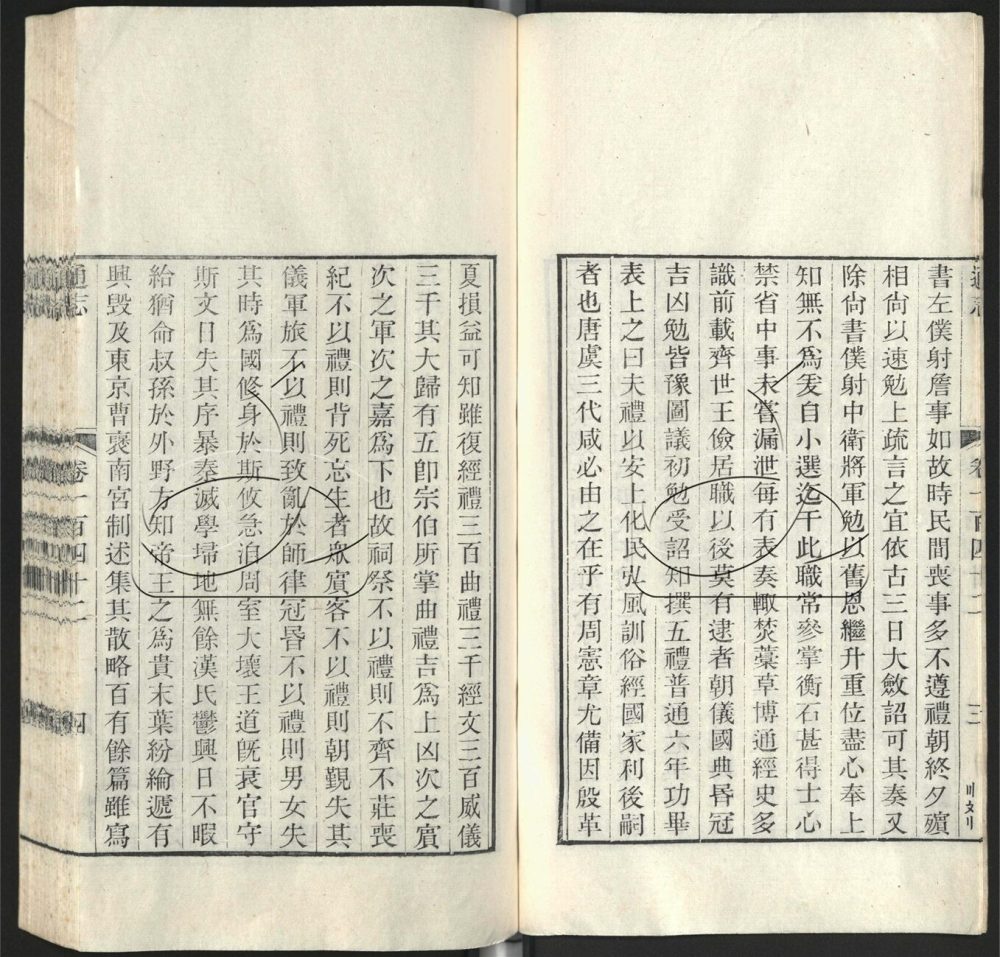 書左僕射詹事如故時民間喪事多不遵禮朝終夕殯
相尙以速勉上疏言之宜依古三日大斂詔可其奏又
除尙書僕射中衛將軍勉以舊恩繼升重位盡心奉上
知無不爲爰自小選迄于此職常參掌衡石甚得士心
禁省中事未嘗漏泄每有表奏輙焚藁草博通經史多
識前載齊世王儉居職以後莫有逮者朝儀國典昏冠
吉凶勉皆豫圖議初勉受詔知撰五禮普通六年功畢
表上之曰夫禮以安上化民弘風訓俗經國家利後嗣
者也唐虞三代咸必由之在乎有周憲章尤備因殷革
夏損益可知雖復經禮三百曲禮三千經文三百威儀
三千其大歸有五卽宗伯所掌曲禮吉爲上凶次之賓
次之軍次之嘉爲下也故祠祭不以禮則不齊不莊喪
紀不以禮則背死忘生者眾賓客不以禮則朝覲失其
儀軍旅不以禮則致亂於師律冠昏不以禮則男女失
其時爲國修身於斯攸急洎周室大壞王道旣衰官守
斯文日失其序暴秦滅學埽地無餘漢氏鬱興日不暇
給猶命叔孫於外野方知帝王之爲貴末葉紛綸遞有
興毀及東京曹褒南宮制述集其散略百有餘篇雖寫
通志 卷一百四十二 四